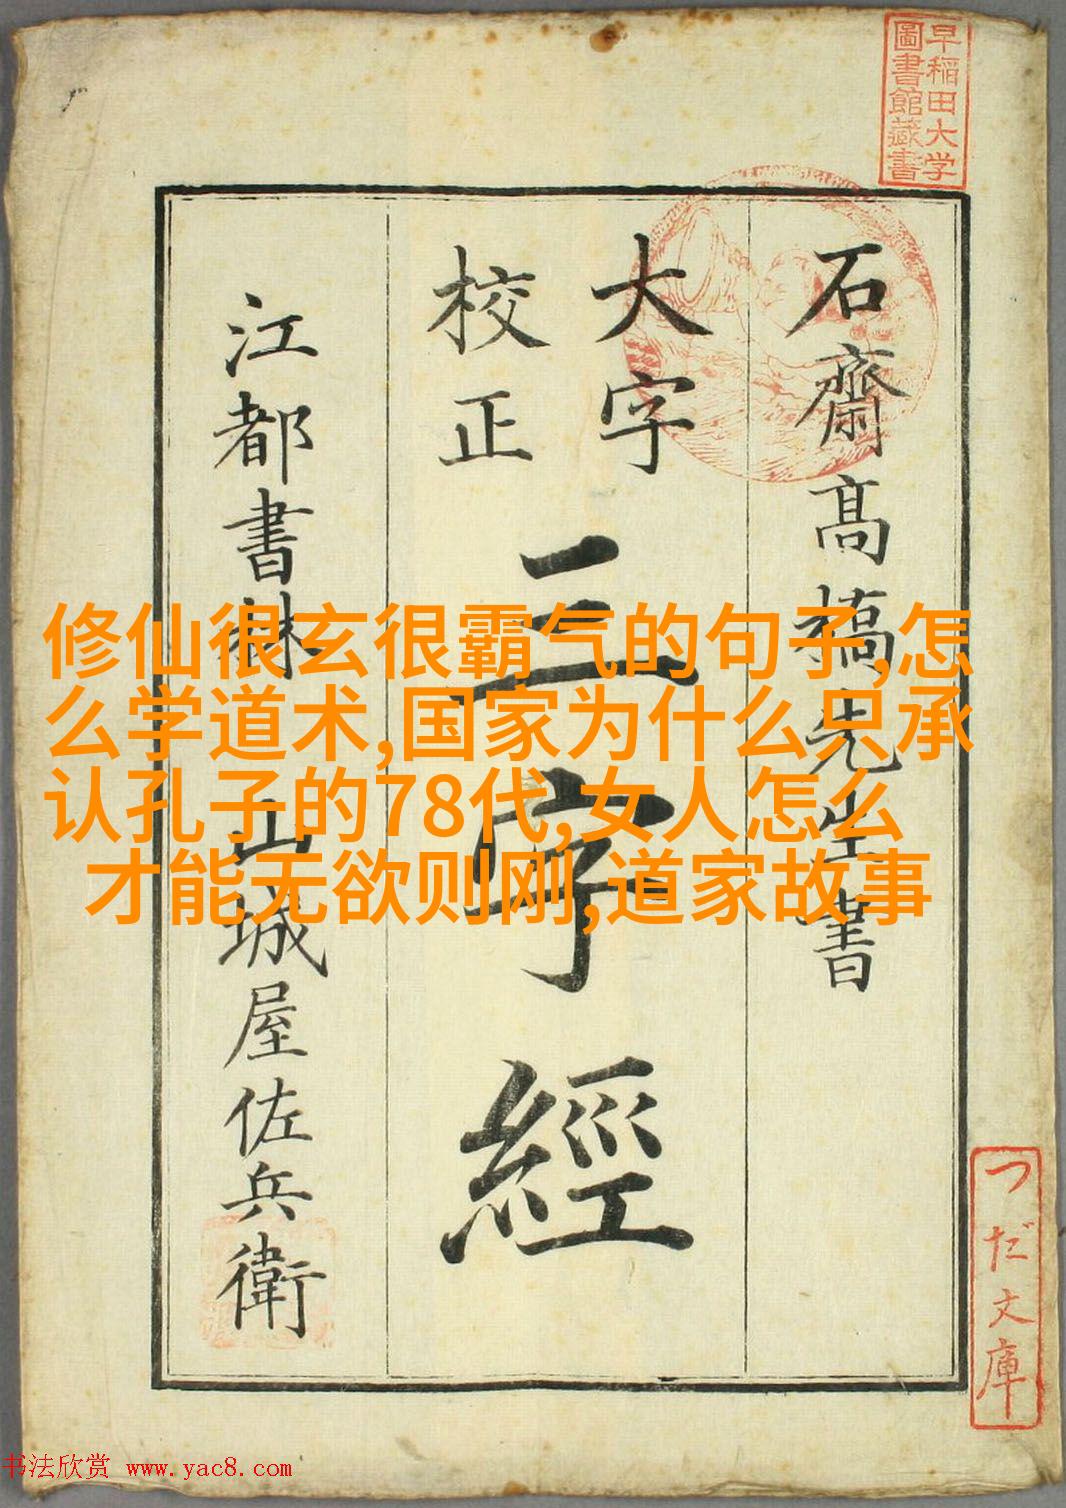 早稲田大学
圖書館藏書
石齋高橋先生書
大字
校正
三字經
江都書林 山城屋佐兵衛
修仙很玄很霸气的句子,怎
么学道术,国家为什么只承
认孔子的78代,女人怎么
才能无欲则刚,道家故事
つだ文庫
书法欣赏 www.yac8.com